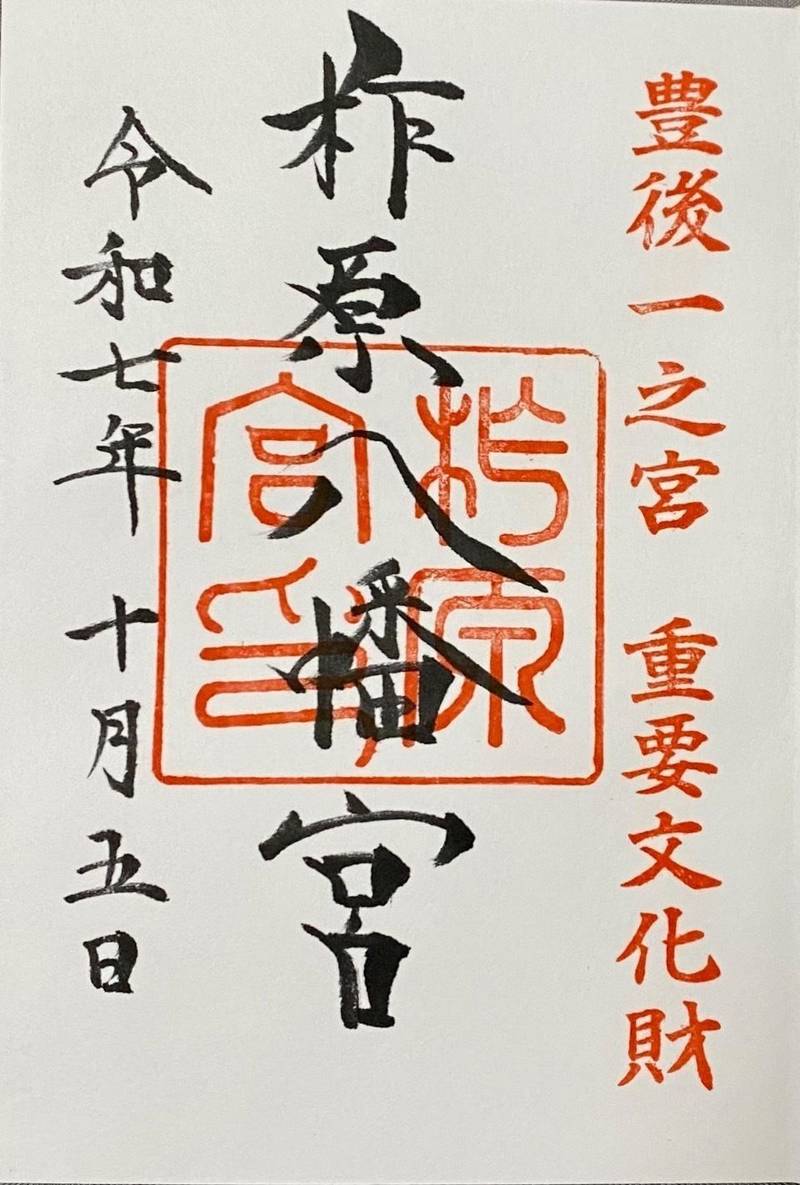 豊後一之宮 重要文化財
柞原八幡宮
柞原
宮印
令和七年 十月五日